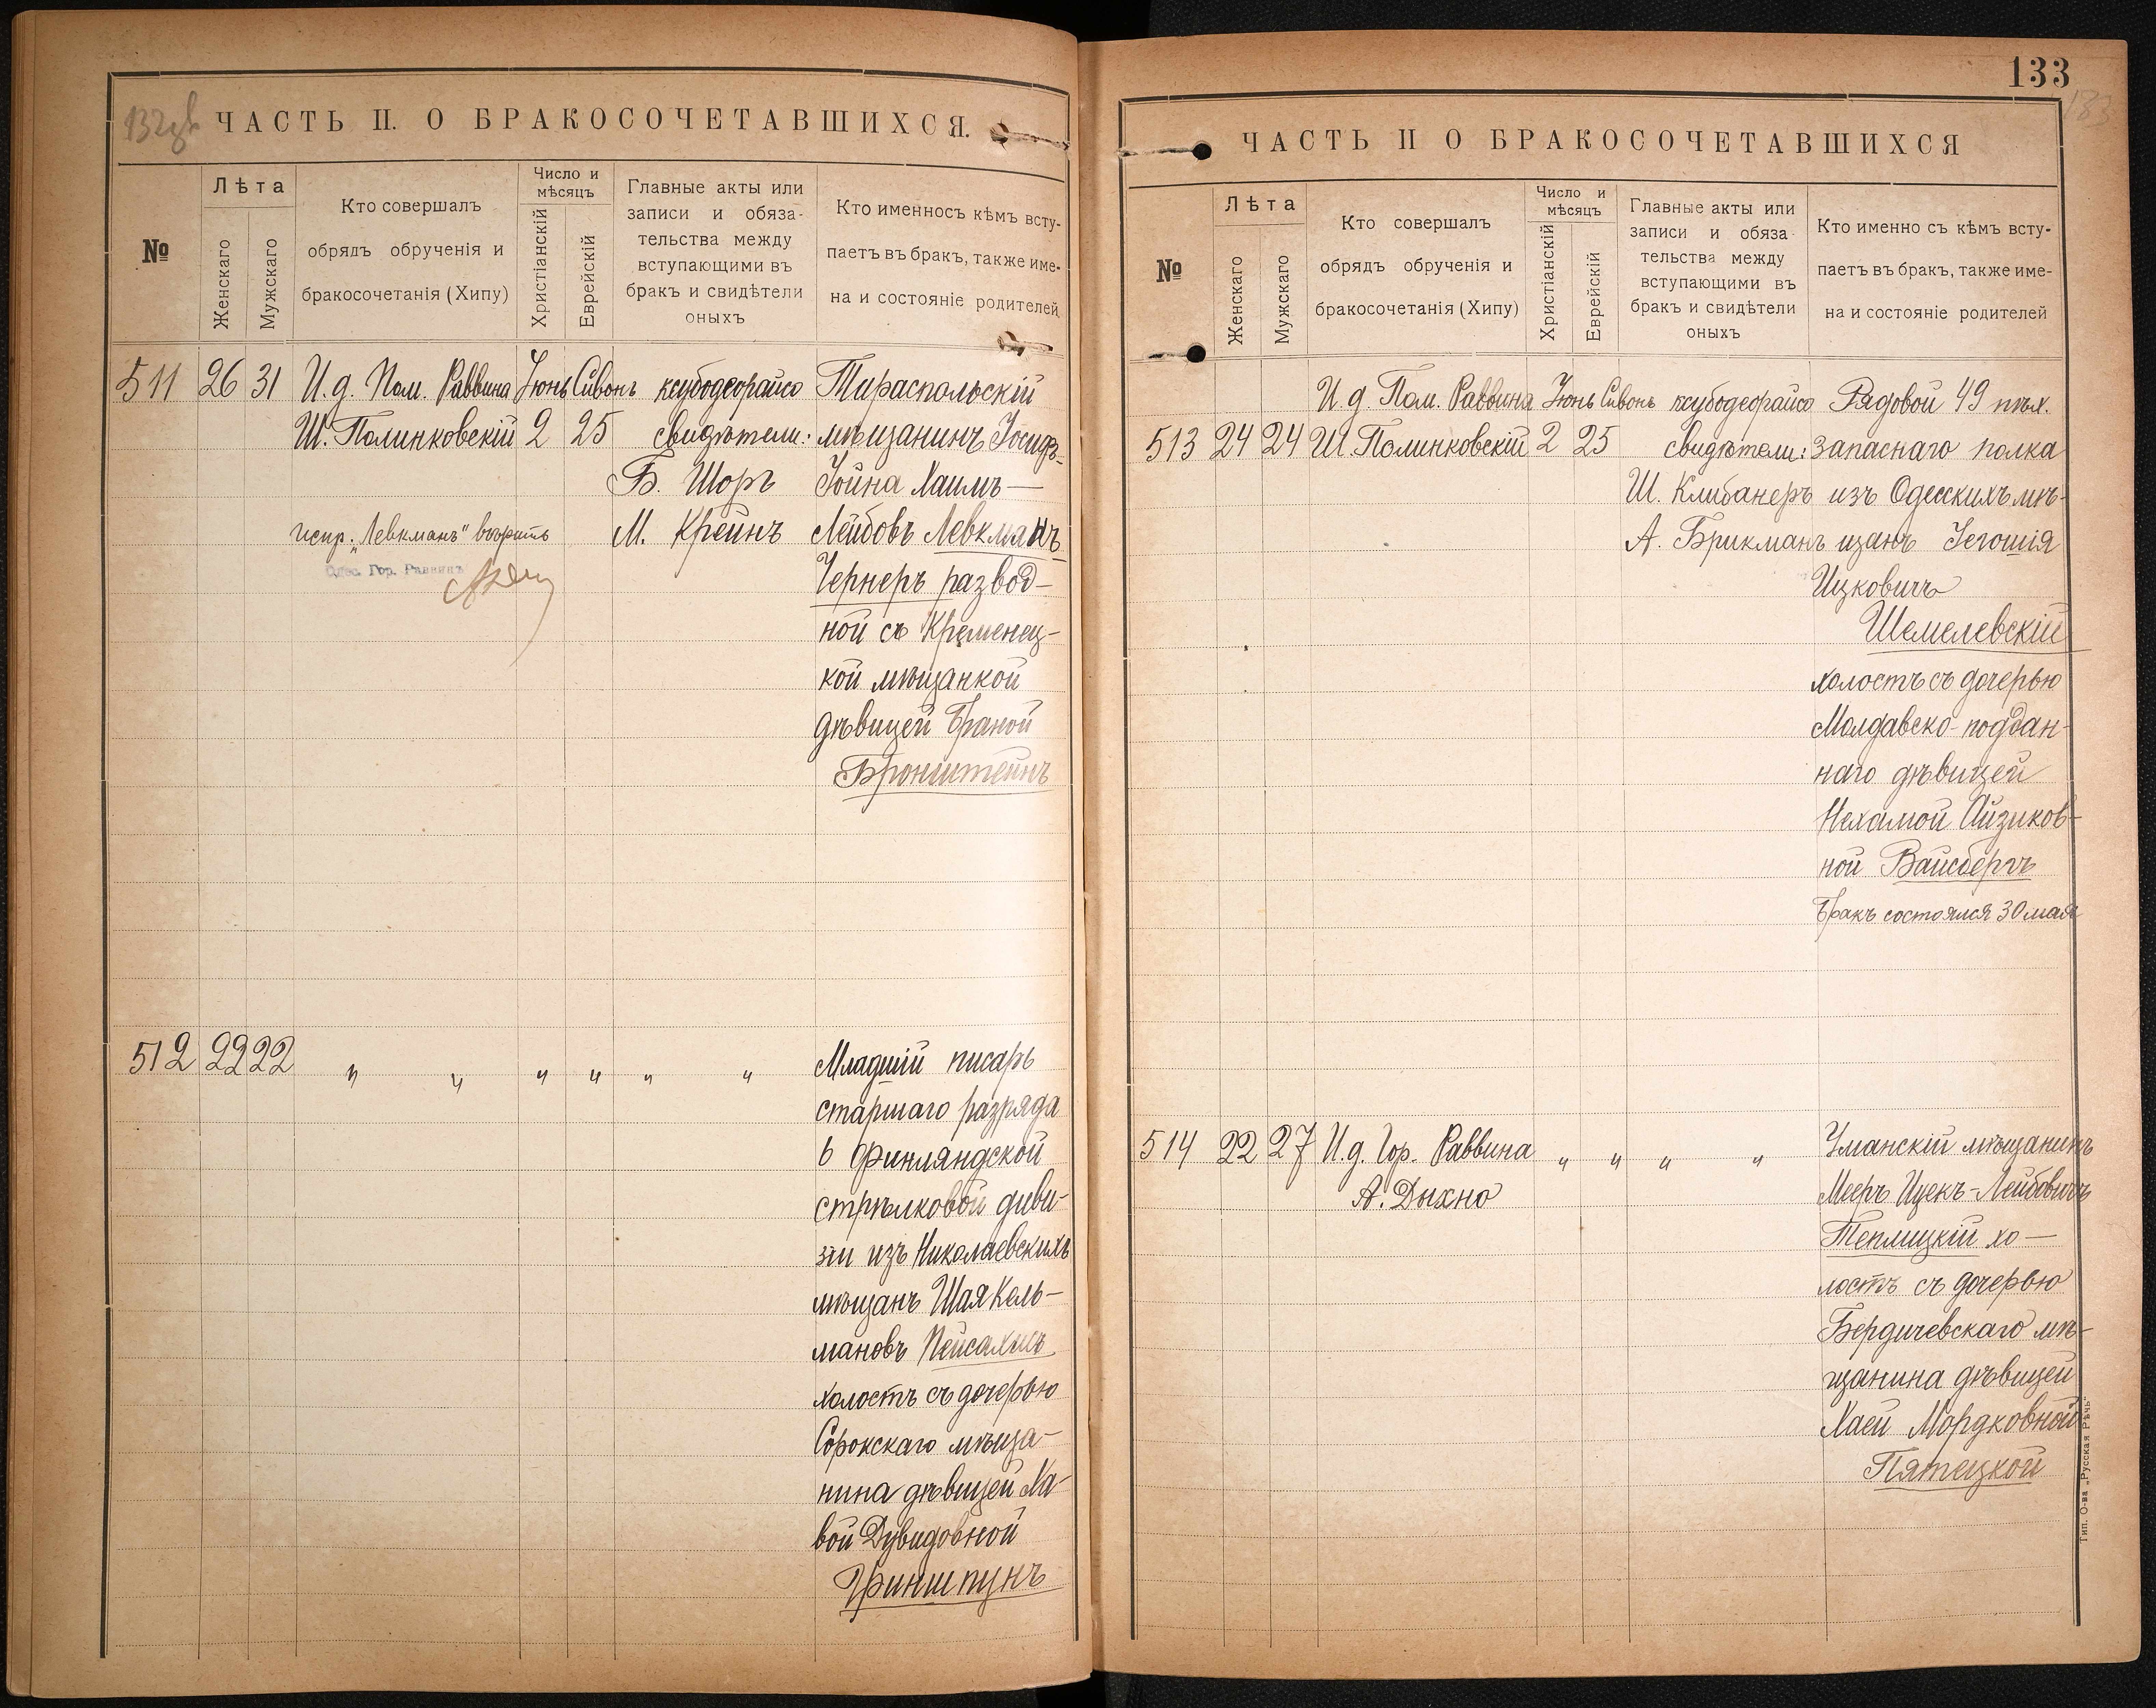 132об
ЧАСТЬ II. О БРАКОСОЧЕТАВШИХСЯ.
№
Лѣта
Женскаго
Мужскаго
Кто совершалъ
обрядъ обрученія и
бракосочетанія (Хипу)
Число и
мѣсяцъ
Христіанскій
Еврейскій
Главные акты или
записи и обяза-
тельства между
вступающими въ
бракъ и свидѣтели
оныхъ
Кто именносъ кѣмъ всту-
паетъ въ бракъ, также име-
на и состояніе родителей
511 26 31 И. д. Пом. Раввина Іюнь Сивонъ ксубодеорайсо Тираспольскій
Ш. Полинковскій 2 25 свидѣтели: мѣщанинъ Іосифъ-
Б. Шоръ Іойна Хаимъ-
испр. „Левкманъ" вѣрить М. Крейнъ Лейбовъ Левкманъ
Одес. Гор. Раввинъ
Чернеръ развод-
ной съ Кременец-
кой мѣщанкой
дѣвицей Браной
Бронштейнъ
512 22 22 " " " " " " Младшій писарь
старшаго разряда
6 Финляндской
стрѣлковой диви-
зіи изъ Николаевскихъ
мѣщанъ Шая Кель-
мановъ Пейсахисъ
холостъ съ дочерью
Сорокскаго мѣща-
нина дѣвицей Ха-
вой Дувидовной
Гриншпунъ
133
133
ЧАСТЬ II О БРАКОСОЧЕТАВШИХСЯ
№
Лѣта
Женскаго
Мужскаго
Кто совершалъ
обрядъ обрученія и
бракосочетанія (Хипу)
Число и
мѣсяцъ
Христіанскій
Еврейскій
Главные акты или
записи и обяза-
тельства между
вступающими въ
бракъ и свидѣтели
оныхъ
Кто именно съ кѣмъ всту-
паетъ въ бракъ, также име-
на и состояніе родителей
И. д. Пом. Раввина Іюнь Сивонъ ксубодеорайсо Рядовой 49 пѣх.
513 24 24 Ш. Полинковскій 2 25 свидѣтели: запаснаго полка
Ш. Клибанеръ изъ Одесскихъ мѣ-
А. Брикманъ щанъ Іегошія
Ицковичъ
Шемелевскій
холостъ съ дочерью
Молдавско-поддан-
наго дѣвицей
Нехамой Айзиков-
ной Вайсбергъ
Бракъ состоялся 30 мая
514 22 27 И. д. Гор. Раввина " " " " Уманскій мѣщанинъ
А. Дыхно Мееръ Ицекъ-Лейбовичъ
Теплицкій хо-
лостъ съ дочерью
Бердичевскаго мѣ-
щанина дѣвицей
Хаей Мордковной
Пятецкой
Тип. О-ва „Русская Рѣчь"